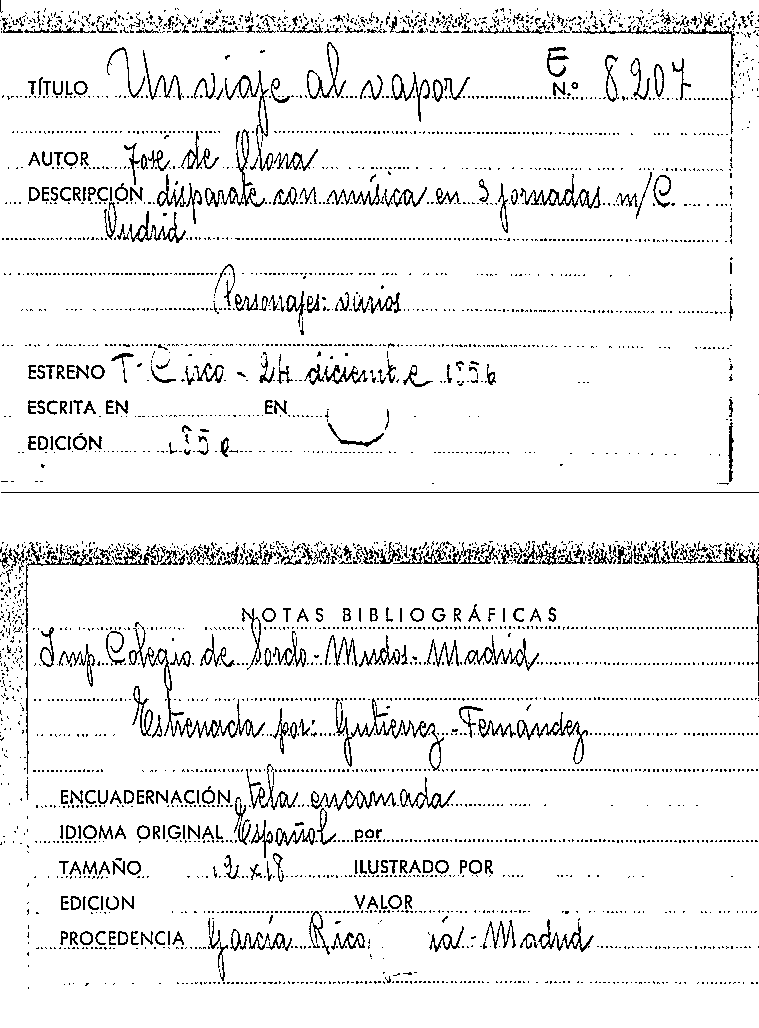 TÍTULO Un viaje al vapor E N.º 8.207
AUTOR José de Olona
DESCRIPCIÓN disparate con música en 3 jornadas m/C.
Oudrid
Personajes: varios
ESTRENO T. Circo - 24 diciembre 1856
ESCRITA EN EN
EDICIÓN
NOTAS BIBLIOGRÁFICAS
Imp. Colegio de Sordo-Mudos-Madrid
Estrenada por: Gutierrez-Fernández
ENCUADERNACIÓN tela encarnada
IDIOMA ORIGINAL Español por
TAMAÑO 12 x 18 ILUSTRADO POR
EDICION VALOR
PROCEDENCIA García Rico - Madrid